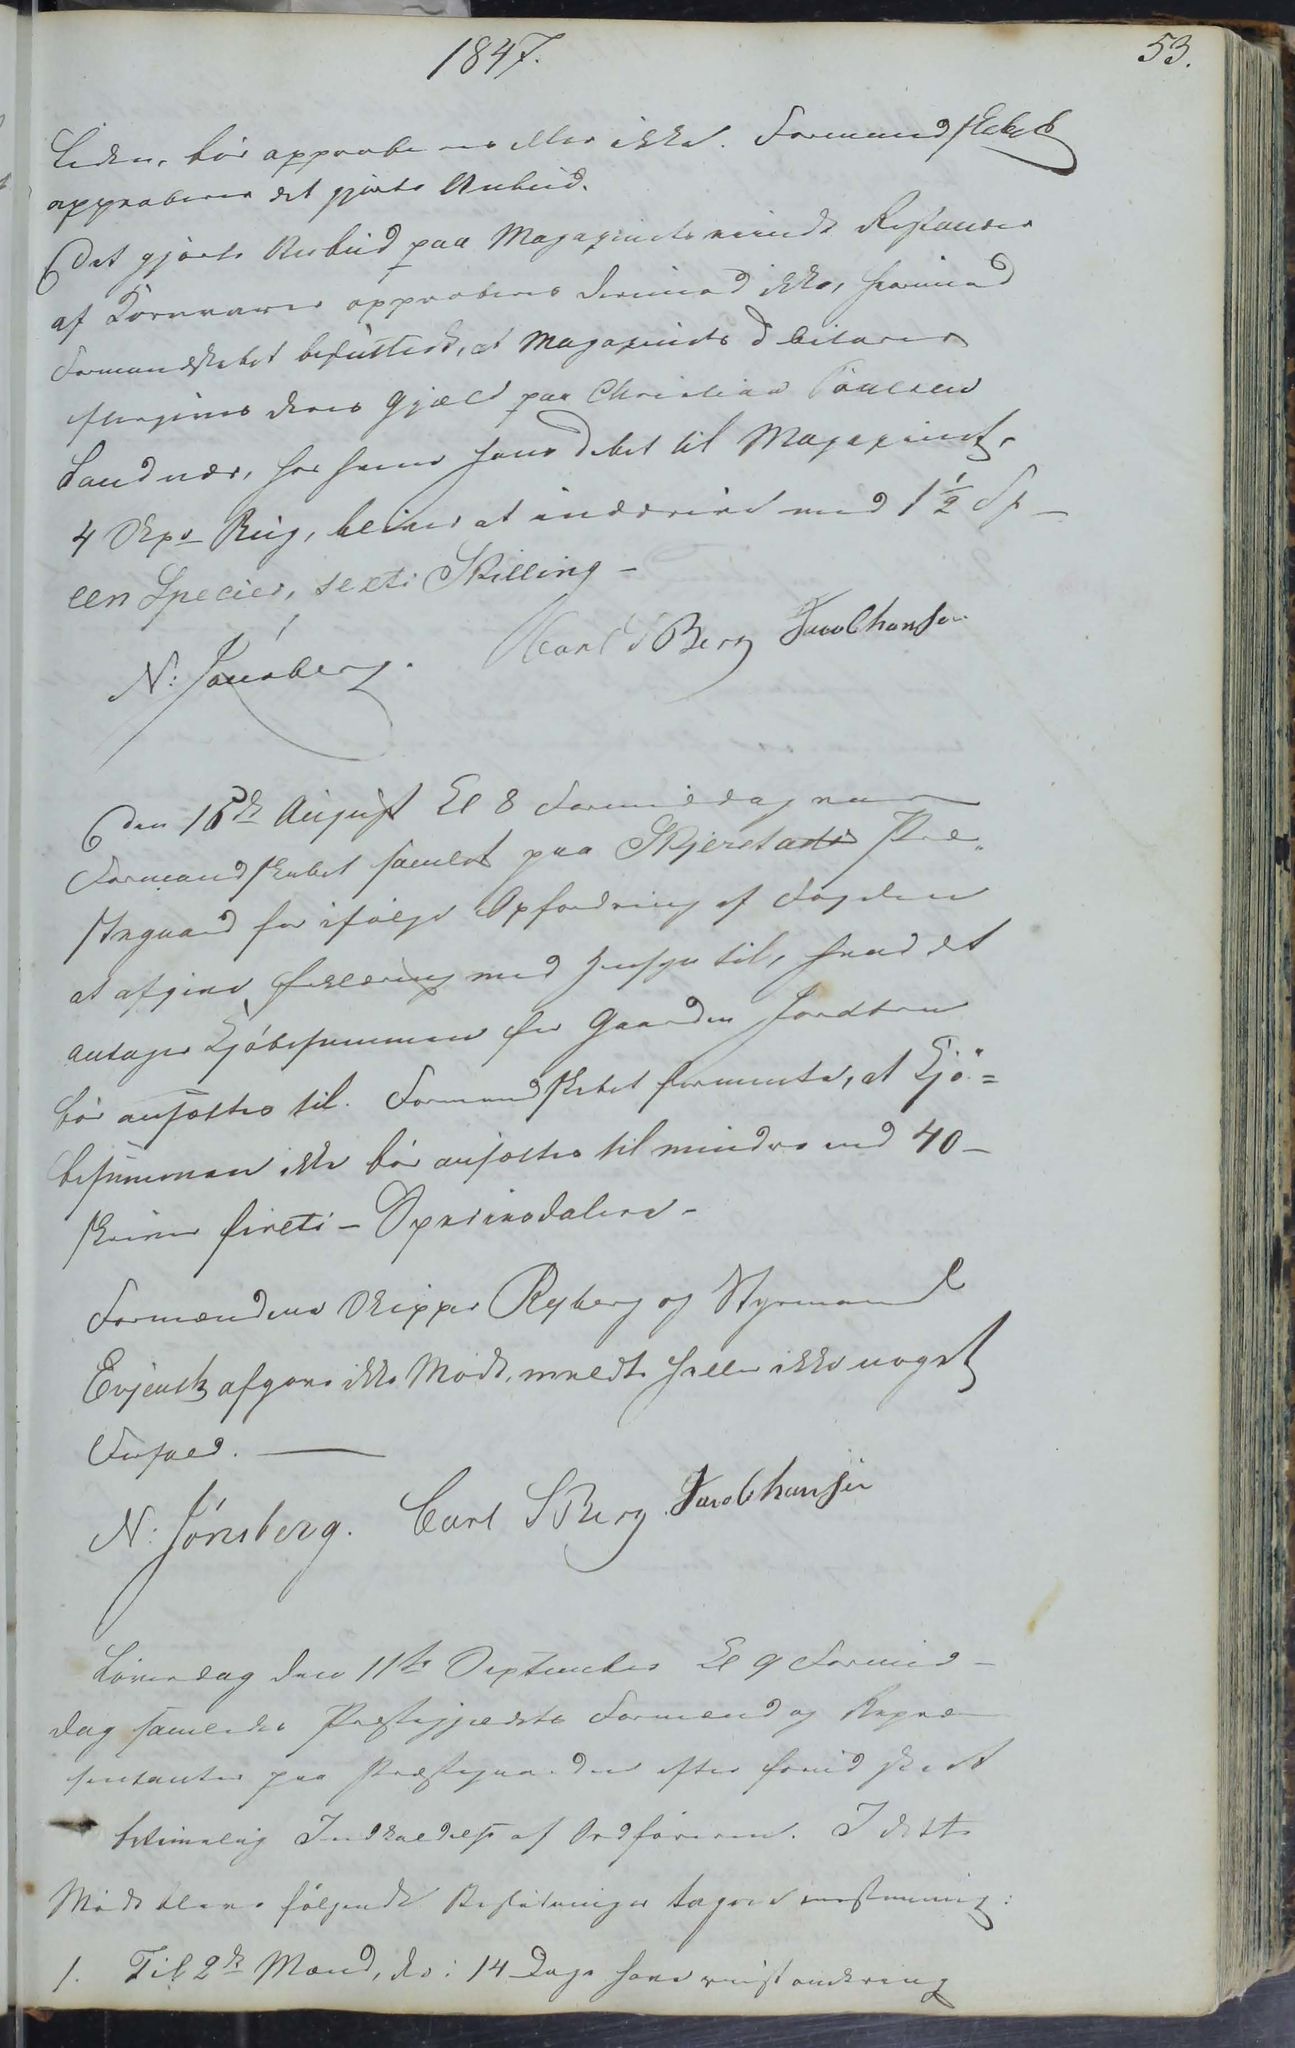 1847.
53.
Tiden, bör approberes eller ikke. Formandskabet
approberer det gjorte Anbud.
Det gjorte Anbud paa Magazinets Restancer
af Kornvarer approberes derimod ikke, hvorimod
Formandskabet besluttede, at Magazinets Debitorer
eftergives deres Gjæld paa Christian Paulsen
Landnær, for hvem hans Debet til Magazinet,
4 Skpr Rug, bliver at inddrive med 1 1/2 Sp -
een Species, sexti Skilling -
N: Jönsberg. Carl S Berg Jacob hansen
Den 16de August Kl 8 Formiddag var
Formandskabet samlet paa Skjerstads Præ-
stegaard for ifölge Opfordring af Fogden
at afgive Erklæring med Hensyn til, hvad det
antager Kjöbesummen for Gaarden Jordbru
bör ansættes til. Formandskabet formente, at Kjö=
besummen ikke bör ansættes til mindre end 40 -
skriver fireti - Speciesdalere -
Formændene Skipper Ryberg og Styrmand
Evjenth afgave ikke Möde, meldte heller ikke noget
Forfald.
N: Jönsberg. Carl S Berg. Jacob hansen
Löverdag den 11te September Kl 9 Formid-
dag samledes Præstegjeldets Formænd og Repræ-
sentanter paa Præstegaarden efter forud skeet
betimelig Indkaldelse af Ordföreren. I dette
Möde bleve fölgende Beslutninger tagne eenstemmig:
1. Til 2de Mænd, der i 14 Dage have